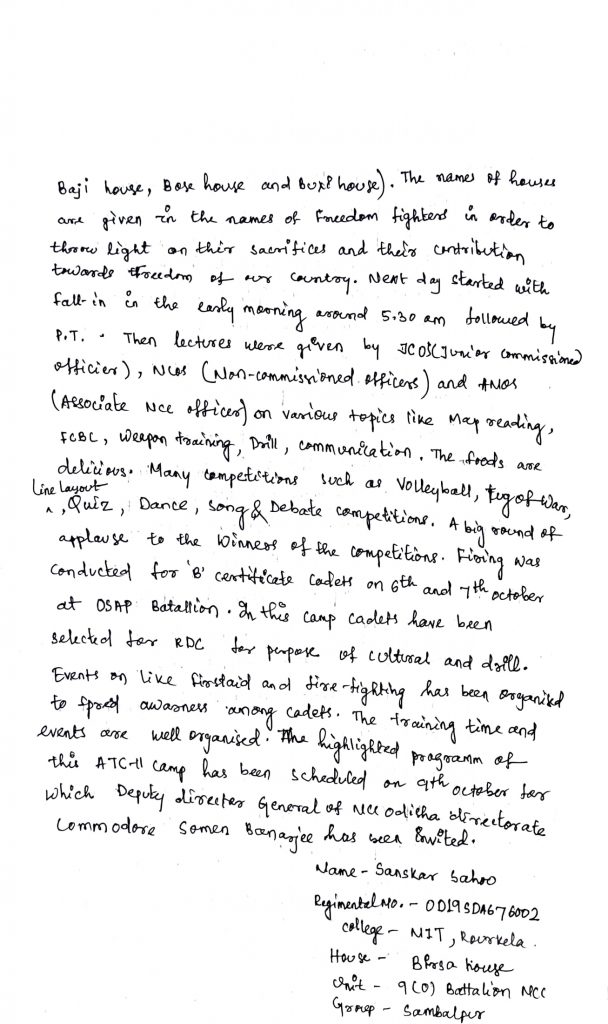 Baji house, Bose house and Buxi house). The names of houses
are given in the names of Freedom fighters in order to
throw light on their sacrifices and their contribution
towards freedom of our country. Next day started with
fall-in in the early morning around 5.30 am followed by
P.T. . Then lectures were given by JCOS(Junior commissioned
officier), NCOs (Non-commissioned officers) and ANOs
(Associate Ncc officer) on various topics like Map reading,
FCBC, Weapon training, Drill, communication. The foods are
delicious. Many competitions such as Volleyball, Tug of War,
Line Layout
^, Quiz, Dance, Song & Debate competitions. A big round of
applause to the winners of the competitions. Firing was
conducted for 'B' certificate cadets on 6th and 7th october
at OSAP Batallion. In this camp cadets have been
selected for RDC for purpose of cultural and drill.
Events on like firstaid and fire-fighting has been organised
to spred awarness among cadets. The training time and
events are well organised. The highlighted programm of
this ATC-II camp has been scheduled on 9th october for
which Deputy director General of Ncc odisha directorate
Commodore Somen Banarjee has been Invited.
Name - Sanskar Sahoo
Regimental No. - OD19SDA676002
college - NIT, Rourkela.
House - Birsa House
Unit - 9(O) Battalion NCC
Group - Sambalpur